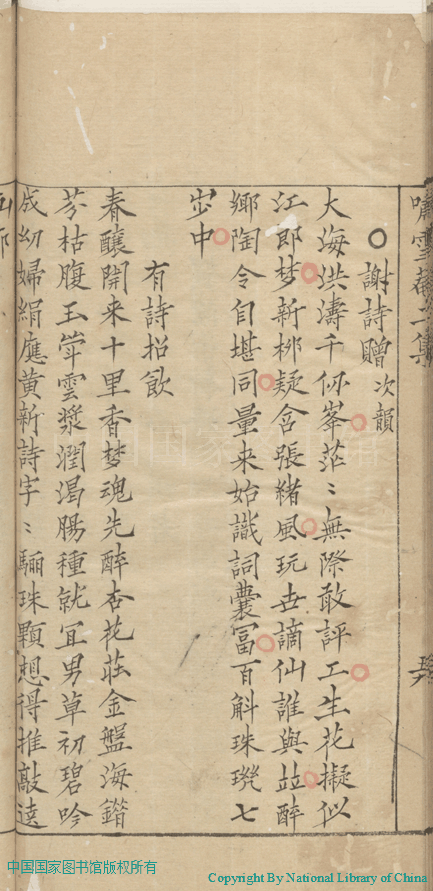 嘯雪菴二集
謝詩贈 次韻
大海洪濤千仞峯茫〻無際敢評工生花擬似
江郎梦新柳疑含張緒風玩世謫仙誰與並醉
鄉陶令自堪同量来始識詞囊富百斛珠璣七
步中
有詩招飲
春釀開来十里香梦魂先醉杏花莊金盤海錯
芬枯腹玉岕雲漿潤渴腸種就宜男草初碧吟
成幼婦絹應黄新詩字〻驪珠顆想得推敲遠
中国国家图书馆版权所有
Copyright By National Library of China